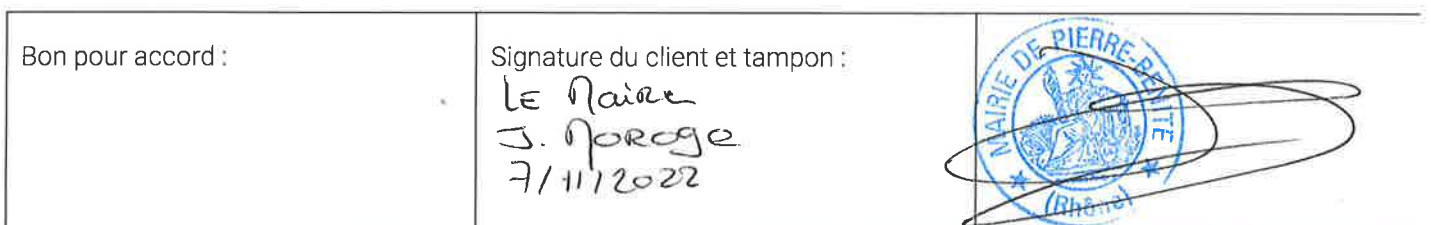 Bon pour accord :
Signature du client et tampon :
LE Maire
J. MOROGE
7/11/2022
MAIRIE DE PIERRE-BENITE
(Rhône)